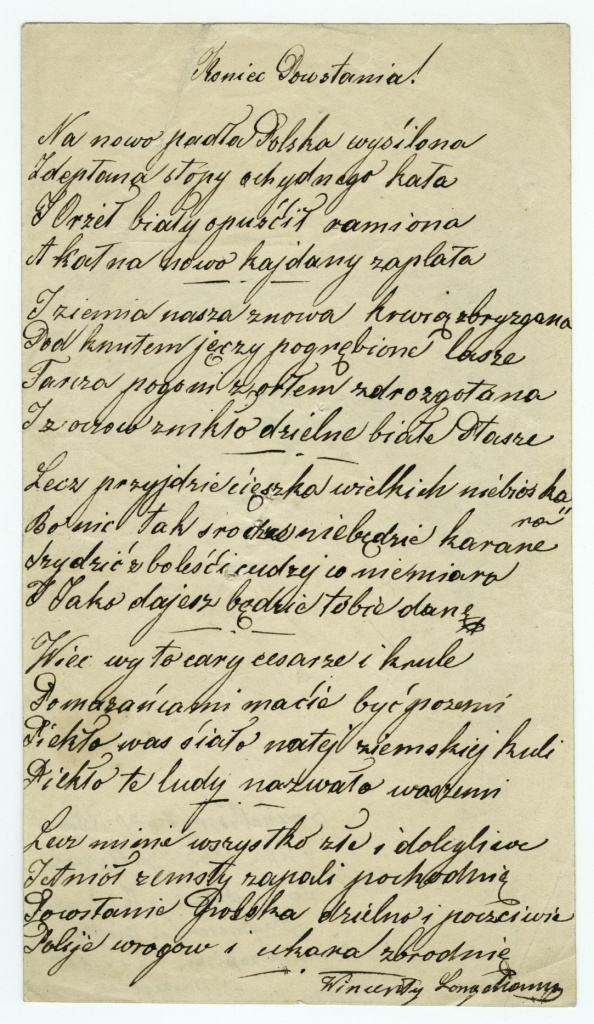 Koniec Powstania!
Na nowo padła Polska wysilona
Zdeptana stopy ochydnego kata
I Orzeł biały opuścił ramiona
A kat na nowo kajdany zaplata
I ziemia nasza znowa krwią zbryzgana
Pod knutem jęczy pogrębione lasze
Tarcza pogoni z orłem zdrozgotana
I z oczow znikło dzielne białe Ptasze
Lecz przyjdzie cięszka wielkich niebios ka
ra"
Bo nic tak srodze niebędzie karane
Szydzić z boleści cudzej co niemiara
I Jako dajesz będzie tobie dane
Wiec wy to cary cesarze i krule
Pomazańcami maćie być pozemi
Piekło was siało natej ziemskiej kuli
Piekło te ludy nazwało waszemi
Lecz minie wszystko złe i dolegliwe
I Aniół zemsty zapali pochodnię
Powstanie Polska dzielno i poczciwie
Pobije wrogow i ukara zbrodnię
Wincenty